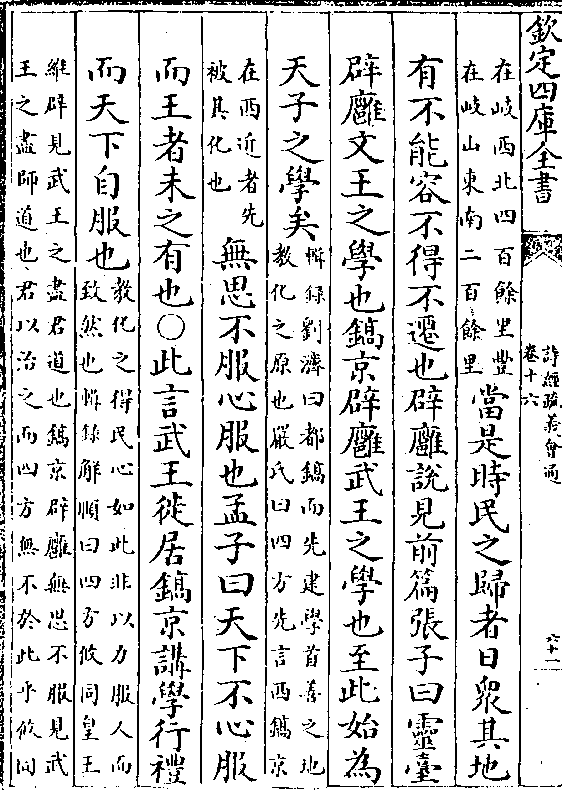 欽定四庫全書
詩經疏義會通
卷十六
六十一
在岐西北四百餘里豐
在岐山東南二百餘里
當是時民之歸者日衆其地
有不能容不得不遷也辟廱說見前篇張子曰靈臺
辟廱文王之學也鎬京辟廱武王之學也至此始為
天子之學矣
輯錄劉濟曰都鎬而先建學首善之地
教化之原也嚴氏曰四方先言西鎬京
在西近者先
被其化也
無思不服心服也孟子曰天下不心服
而王者未之有也○此言武王徙居鎬京講學行禮
而天下自服也
教化之得民心如此非以力服人而
致然也輯錄解順曰四方攸同皇王
維辟見武王之盡君道也鎬京辟廱無思不服見武
王之盡師道也君以治之而四方無不於此乎攸同